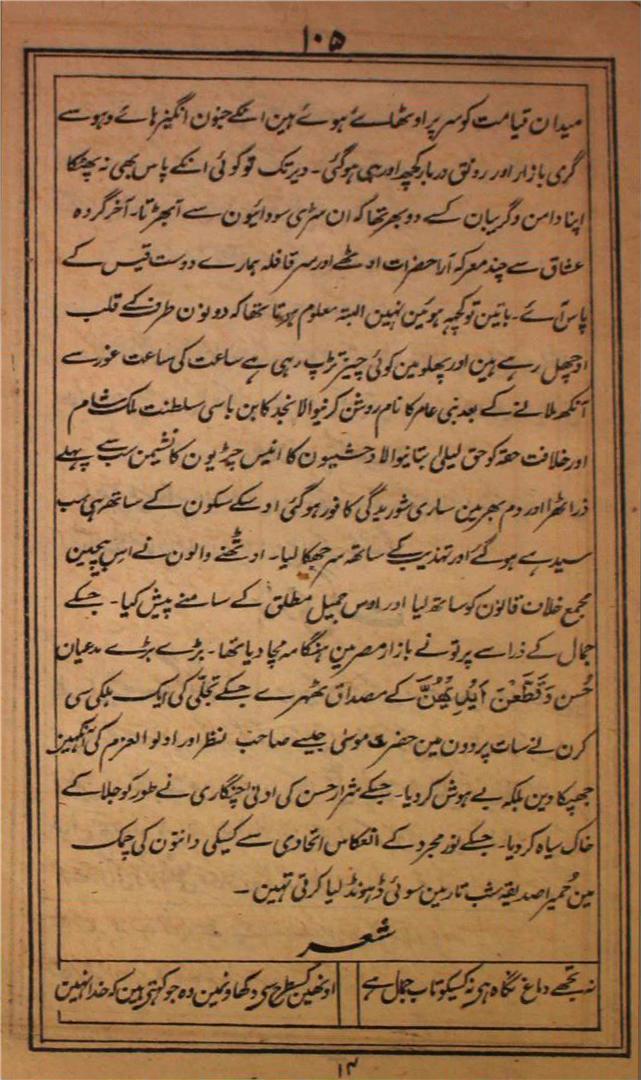 ۱۰۵
میدان قیامت کو سر پر اوٹھائے ہوئے ہین انکے جنون انگیز ہائے وہو سے
گرمی بازار اور رونق دربار کچھ اور ہی ہوگئی۔ دیر تک تو کوئی انکے پاس بھی نہ پھٹکا
اپنا دامن وگریبان کسے دوبھر تھا کہ ان سڑی سودائیون سے آبھڑتا۔ آخر گروہ
عشاق سے چند معرکہ آرا حضرات اوٹھے اور سر قافلہ ہمارے دوست قیس کے
پاس آئے۔ باتین تو کچھ ہوئین نہین البتہ معلوم ہوتا تھا کہ دونون طرف کے قلب
اوچھل رہے ہین اور پہلو مین کوئی چیز تڑپ رہی ہے ساعت کی ساعت غور سے
آنکھ ملانے کے بعد بنی عامر کا نام روشن کرنیوالا نجد کا بن باسی سلطنت ملک شام
اور خلافت حقہ کو حق لیلیٰ بتانیوالا وحشیون کا انیس چڑیون کا نشیمن سب سے پہلے
ذرا ٹھرا اور دم بھر مین ساری شوریدگی کافور ہوگئی اوسکے سکون کے ساتھ ہی سب
سیدہے ہوگئے اور تہذیب کے ساتھ سر جھکا لیا۔ اوٹھنے والون نے اس بیچین
مجمع خلاف قانون کو ساتھ لیا اور اوس جمیل مطلق کے سامنے پیش کیا۔ جسکے
جمال کے ذرا سے پرتو نے بازار مصر مین ہنگامہ مچا دیا تھا۔ بڑے بڑے مدعیان
حُسن وَقَطَّعْنَ اَیْدِیَہُنَّ کے مصداق ٹھہرے جسکے تجلّی کی ایک ہلکی سی
کرن نے سات پردون مین حضرت موسیٰ جیسے صاحب نظر اور اولوالعزم کی آنکھین
جھپکا دین بلکہ بے ہوش کردیا۔ جسکے شرار حسن کی ادنیٰ چنگاری نے طور کو جلا کے
خاک سیاہ کردیا۔ جسکے نور مجرد کے انعکاس اتحادی سے کسیکی دانتون کی چمک
مین حُمیرا صدیقہ شب تار مین سوئی ڈہونڈ لیا کرتی تہین۔
شعر
نہ تجھے دماغ نگاہ ہی نہ کسیکو تاب جمال ہے
اونہین کسطرح سی دکھاؤنمین وہ جو کہتی ہین کہ خدا نہین
۱۴